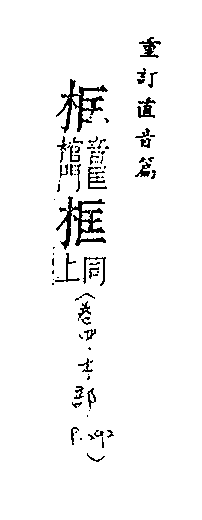 重訂直音篇
音匡
棺門
框
同上
(卷四·木部 P.292)